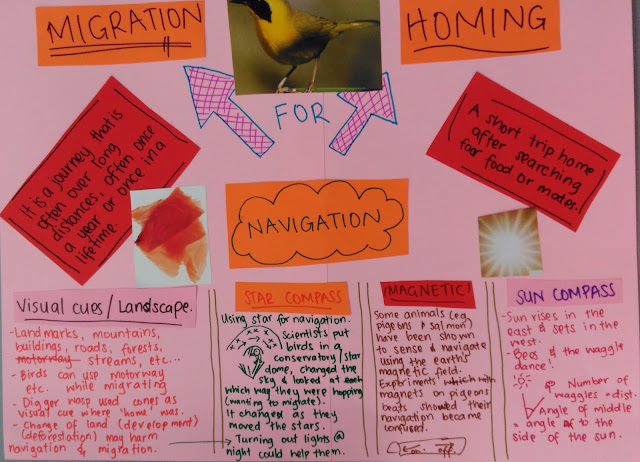 MIGRATION
HOMING
FOR
It is a journey that is
often over long
distances, often once
a year or once in a
lifetime.
A short trip home
after searching
for food or mates.
NAVIGATION
Visual cues / Landscape.
- Landmarks, mountains,
buildings, roads, forests,
motorway streams, etc...
- Birds can use motorway
etc. while migrating
- Digger wasp used cones as
visual cue where 'home' was.
- Change of land (development)
(deforestation) may harm
navigation & migration.
STAR COMPASS
Using star for navigation.
Scientists put
birds in a
conservatory/star
dome, changed the
sky & looked at each
which way they were hopping
(wanting to migrate).
It changed as they
moved the stars.
→ Turning out lights @
night could help them.
MAGNETIC!
Some animals (e.g.
pigeons & salmon)
have been shown
to sense & navigate
using the earths
magnetic field.
Experiments which with
magnets on pigeons
beats showed their
navigation became
confused.
on off
SUN COMPASS
- Sun rises in the
east & sets in the
west.
- Bees & the waggle
dance!
Number of
waggles = dist.
Angle of middle
= angle to the
side of the sun.